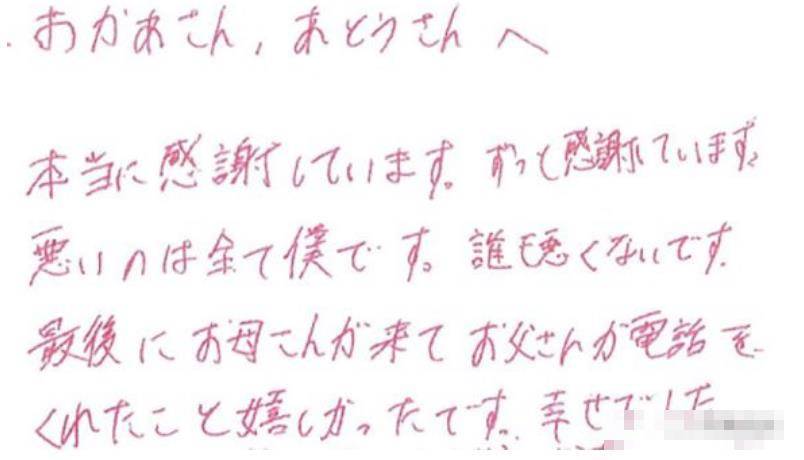 おかあさん,おとうさんへ
本当に感謝しています。ずっと感謝しています。
悪いのは全て僕です。誰も悪くないです。
最後にお母さんが来てお父さんが電話を
くれたこと嬉しかったです。幸せでした